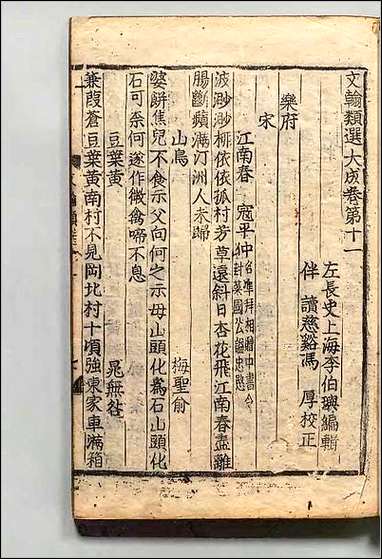 文翰類選大成卷第十一
左長史上海李伯璵編輯
伴讀慈谿馮厚校正
樂府
宋
江南春 寇平仲 名準拜相贈中書令
封萊國公謚忠愍
波渺渺栁依依孤村芳草遠斜日杏花飛江南春盡離
腸斷蘋滿汀洲人未歸
山鳥 梅聖俞
婆餅焦兒不食示父向何之示母山頭化爲石山頭化
石可奈何遂作微禽啼不息
豆葉黃 晁無咎
蒹葭蒼豆葉黃南村不見岡北村十頃強東家車滿箱